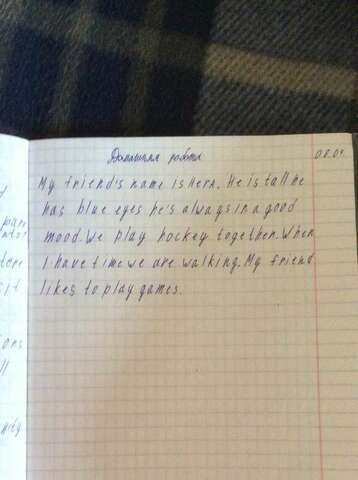 Домашняя работа 08.04.
My friend's name is Hern. He is tall he
has blue eyes he's always in a good
mood. We play hockey together. When
I have time we are walking. My friend
likes to play games.